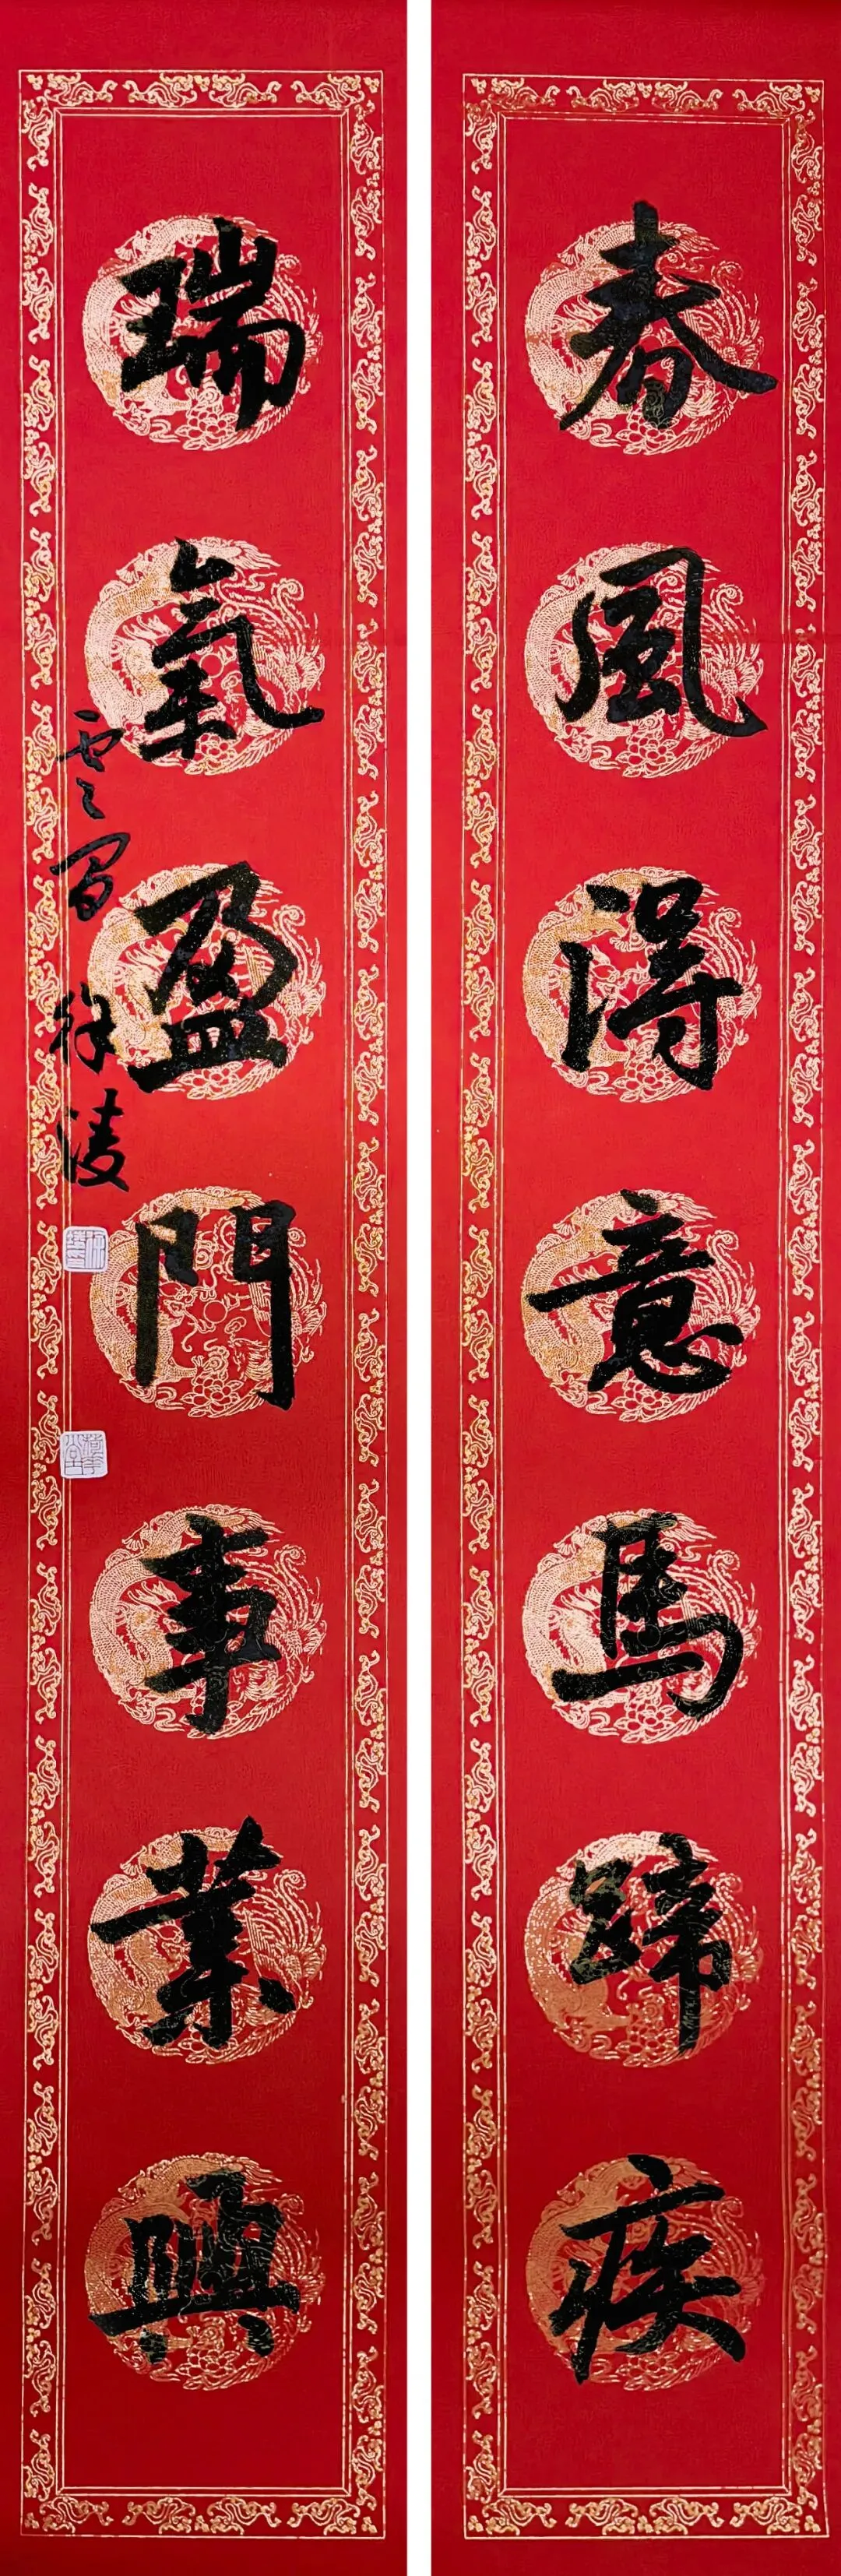 春風得意馬蹄疾
瑞氣盈門事業興
徐凌